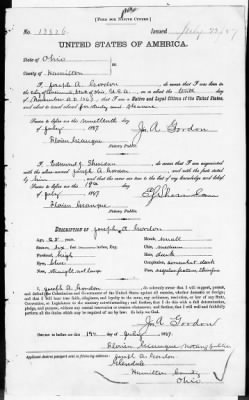 [FORM FOR NATIVE CITIZEN.]
No. 13826 Issued July 23/97
UNITED STATES OF AMERICA.
State of Ohio
County of Hamilton
I, Joseph A. Gordon, do swear that I was born
in the
State of Ohio U.S.A., on or about the tenth day
of November A.D. 1863; that I am a Native and Loyal Citizen of the United States,
and about to travel abroad for study and pleasure
Sworn to before me this nineteenth day
of July 1897
Jos A. Gordon
Notary Public.
I, Edmund J. Sheridan, do swear that I am acquainted
with the above named Joseph A. Gordon and with the facts stated by
him, and that the same are true to the best of my knowledge and belief.
Sworn to before me this 19th day
of July 1897
Notary Public.
DESCRIPTION OF Joseph A. Gordon
Age, Mouth, small
Stature, Chin, medium
Forehead, high Hair, dark
Eyes, blue Complexion, somewhat dark
Nose, straight and large Face,
I, Joseph A. Gordon, do solemnly swear that I will support, protect,
and defend the Constitution and Government of the United States against all enemies, whether domestic or foreign;
and that I will bear true faith, allegiance, and loyalty to the same, any ordinance, resolution, or law of any State,
Convention, or Legislature to the contrary notwithstanding; and further, that I do this with a full determination,
pledge, and purpose, without any mental reservation or evasion whatsoever; and further, that I will well and faithfully perform
all the duties which may be required of me by law. So help me God.
Jos A. Gordon
Sworn to before me this 19th day of July 1897.
Notary public
Applicant desires passport sent to following address:
Joseph A. Gordon
Glendale
Hamilton County
Ohio